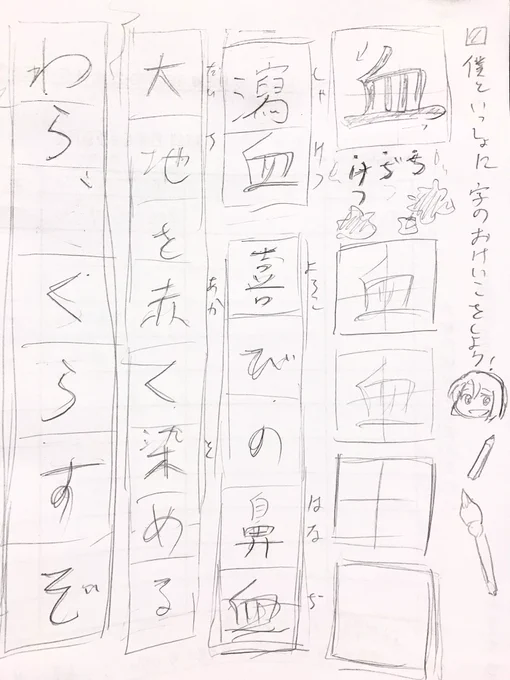 僕といっしょに 字のおけいこをしよう!
血
ち
ぢ
けつ
血
血
しゃけつ
瀉血
よろこ はなぢ
喜びの鼻血
だいち あか そ
大地を赤く染める
わら ぐらすぞ